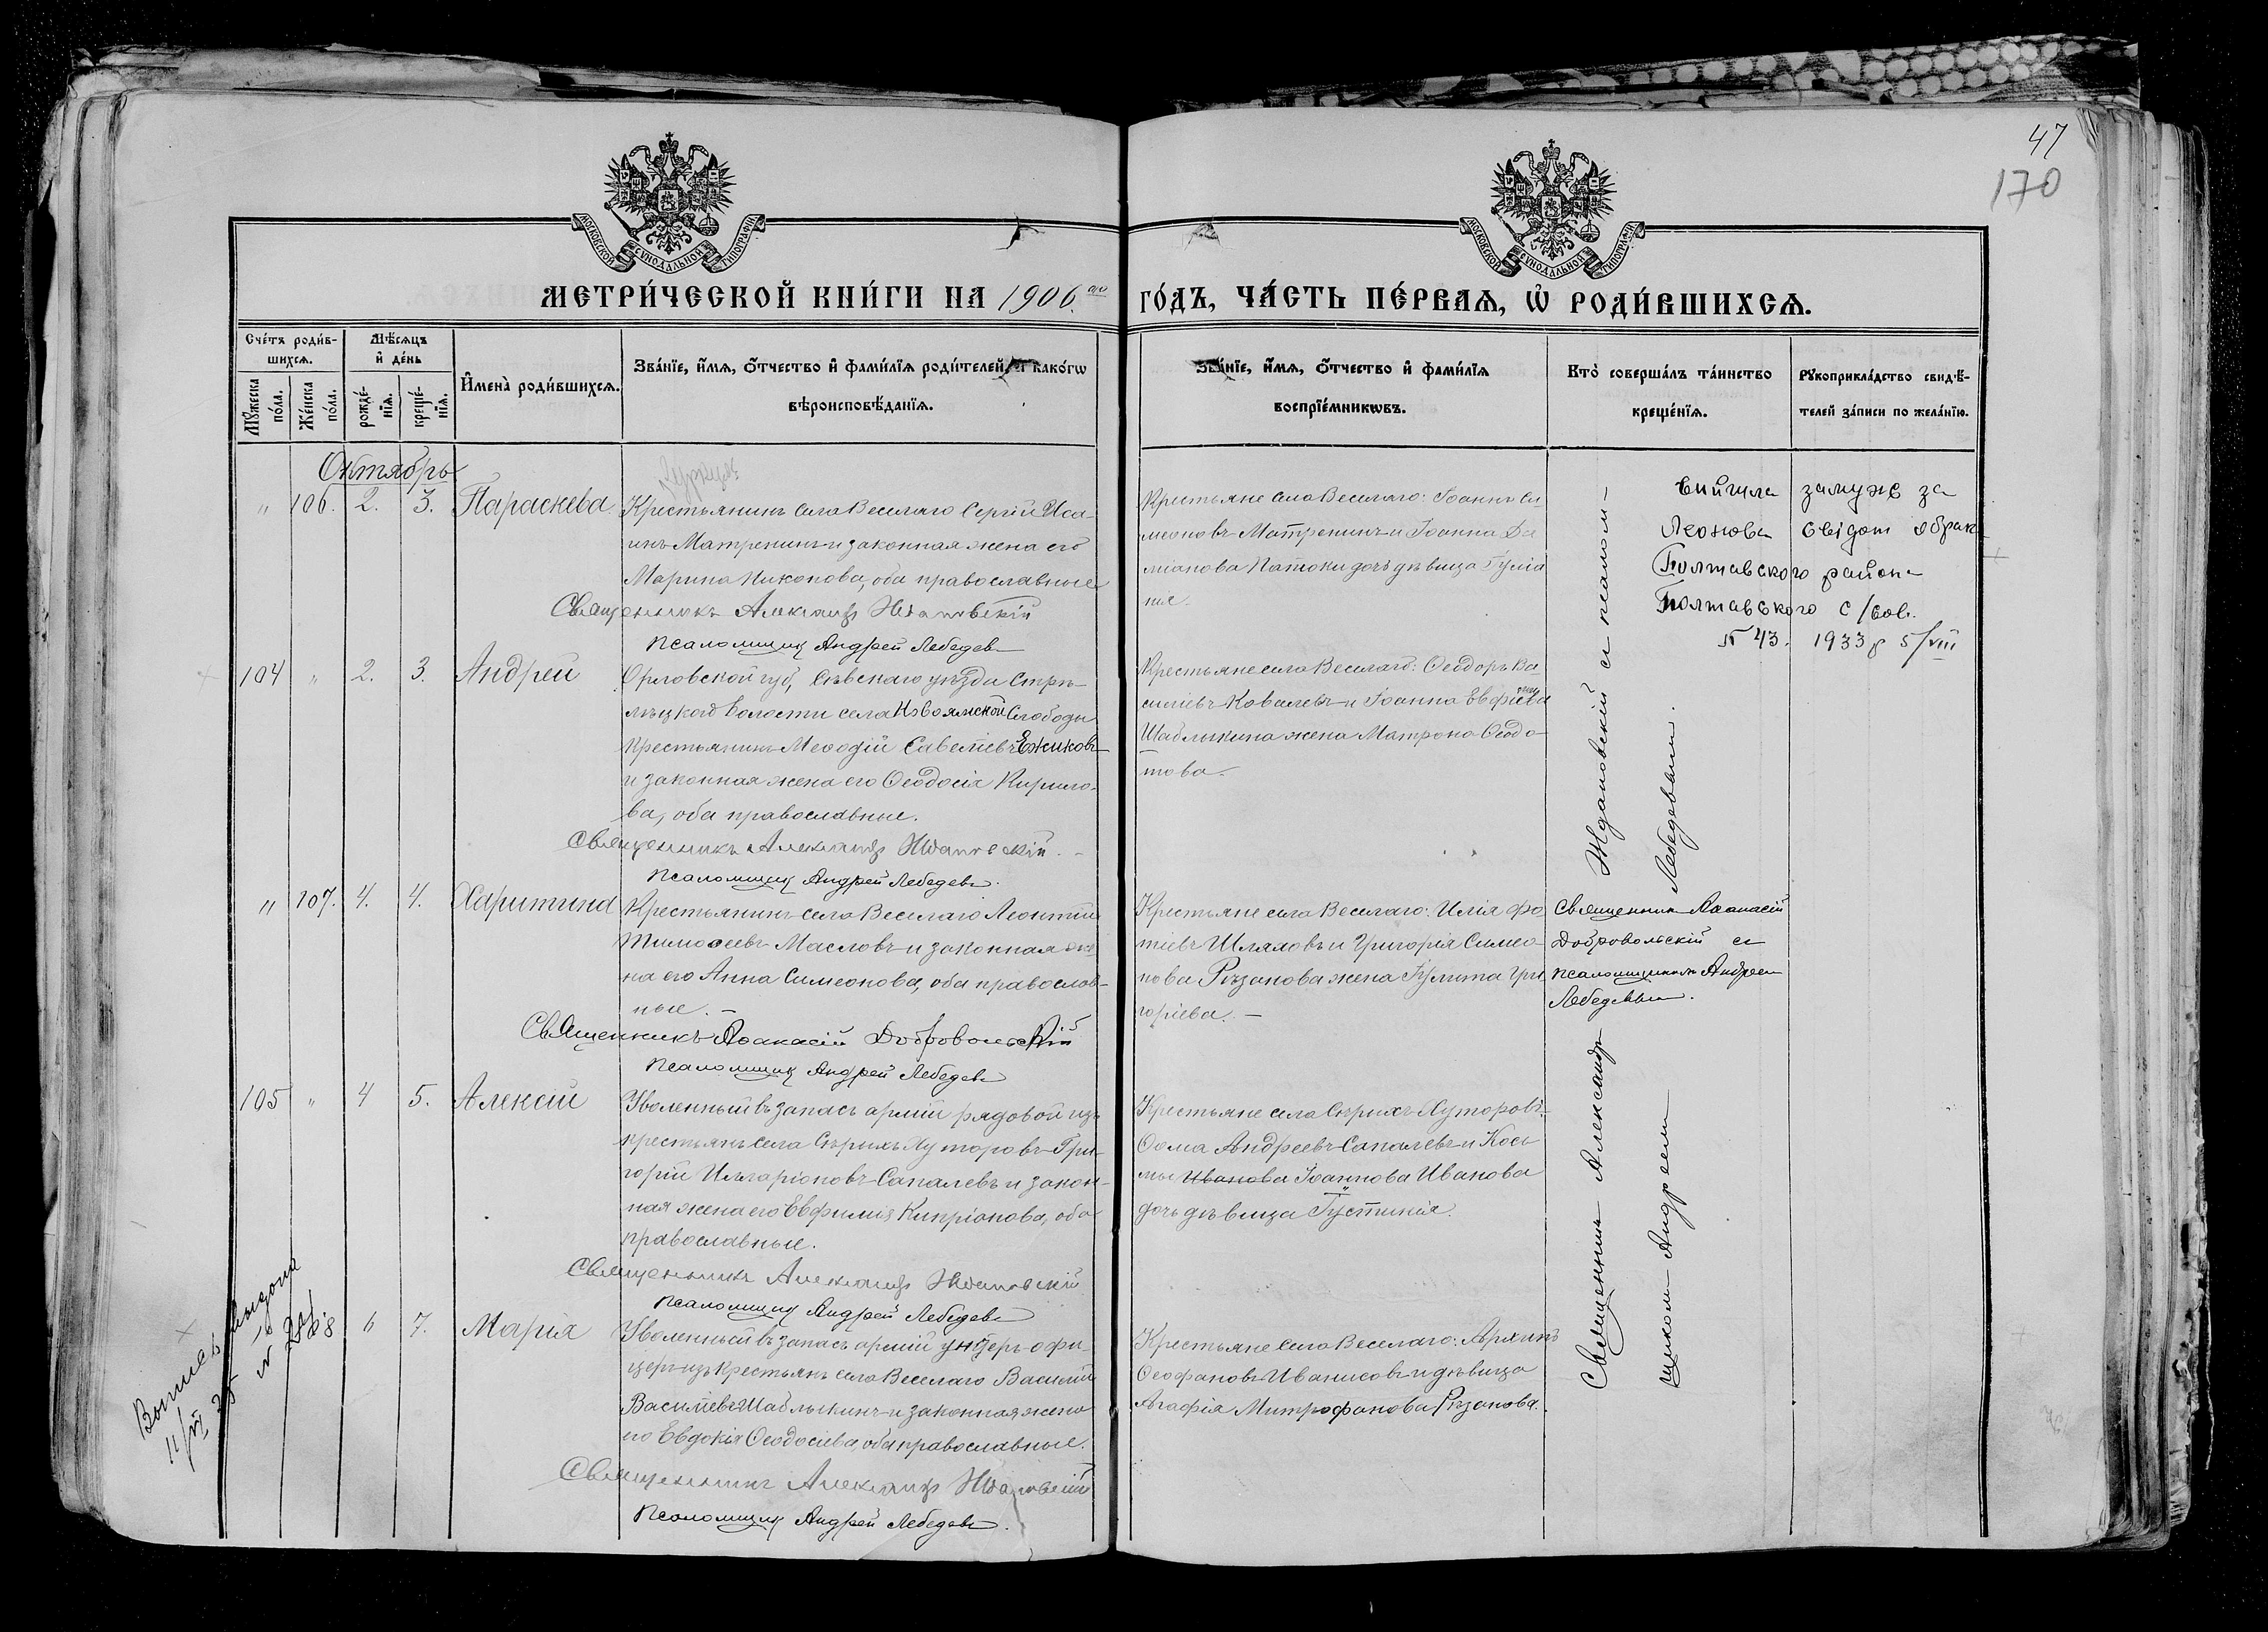 47
170
МОСКОВСКОЙ СѴНОДАЛЬНОЙ ТИПОГРАФІИ
МОСКОВСКОЙ СѴНОДАЛЬНОЙ ТИПОГРАФІИ
МЕТРИ́ЧЕСКОЙ КНИ́ГИ НА 1906 го
ГО́ДЪ, ЧА́СТЬ ПЕ́РВАѦ, Ѡ РОДИ́ВШИХСѦ.
Сче́тъ роди́в-
шихсѧ.
Мꙋжеска по́ла.
Же́нска по́ла.
Мѣ́сѧцъ
и҆ де́нь
рожде́-
нїѧ.
креще́-
нїѧ.
И҆мена̀ роди́вшихсѧ.
Зва́нїе, и҆́мѧ, ѻ҆́тчество и҆ фами́лїѧ роди́телей, и҆ како́гѡ
вѣроисповѣ́данїѧ.
Зва́нїе, и҆́мѧ, ѻ҆́тчество и҆ фами́лїѧ
воспрїе́мникѡвъ.
Кто̀ соверша́лъ та́инство
креще́нїѧ.
Рꙋкоприкла́дство свидѣ́-
телей за́писи по жела́нїю.
Октябрь
" 106. 2. 3. Параскева.
Крестьянинъ села Веселаго Сергій Иса-
инъ Матренинъ и законная жена его
Марина Никонова, оба православные
Священникъ Александръ Ждановскій
Псаломщикъ Андрей Лебедевъ
Крестьяне села Веселаго: Іоаннъ Си-
меоновъ Матренинъ и Іоанна Да-
міанова дочь дѣвица Іуліа
нія.
вийшла замуж за
Леонова свідот о брак
Полтавского район
Полтавского с/сов.
№ 43. 1933 р 5/VIII
104 " 2. 3. Андрей
Орловской губ, Сѣвскаго уѣзда Стрѣ-
лѣцкой волости села Слободы
крестьянинъ Меѳодій Савеліевъ Ежиковъ
и законная жена его Ѳеодосія Кирило-
ва, оба православные.
Священникъ Александръ Ждановскій.
Псаломщикъ Андрей Лебедевъ.
Крестьяне села Веселаго: Ѳеодоръ Ва-
силіевъ Ковалевъ и Іоанна
Шаблыкина жена Матрона Ѳеодо-
това.
" 107. 4. 4. Харитина
Крестьянинъ села Веселаго Леонтій
Тимоѳеевъ Масловъ и законная же-
на его Анна Симеонова, оба православ-
ные. –
Священникъ Аѳанасій Добровольскій
Псаломщикъ Андрей Лебедевъ
Крестьяне села Веселаго: Илія Фо-
тіевъ Шляховъ и Григорія Симео-
нова Рѣзанова жена Іулита Гри
горіева. –
Священник Аѳанасій
Добровольскій съ
псаломщикомъ Андреемъ
Лебедевымъ.
105 " 4 5. Алексій
Уволенный въ запасъ арміи рядовой изъ
крестьянъ села Сѣрыхъ Хуторовъ Гри-
горій Иларіоновъ Сапалевъ и закон-
ная жена его Евфимія Кипріанова, оба
православные.
Священникъ Александръ Ждановскій
Псаломщикъ Андрей Лебедевъ
Крестьяне села Сѣрыхъ Хуторовъ:
Ѳома Андреевъ Сапалевъ и Кось-
мы Иванова Іоаннова Иванова
дочь дѣвица Іустинія.
Священникъ Александръ Ждановскій съ псалом-
щикомъ Андреемъ Лебедевымъ.
" 108 6 7. Марія
Уволенный въ запасъ арміи унтеръ-офи-
церъ изъ крестьянъ села Веселаго Василій
Василіевъ Шаблыкинъ и законная жена
его Евдокія Ѳеодосіева, оба православные.
Священникъ Александръ Ждановскій
Псаломщикъ Андрей Лебедевъ.
Крестьяне села Веселаго: Архипъ
Ѳеофановъ Иванисовъ и дѣвица
Агафія Митрофанова Рѣзанова.
11/VI 35